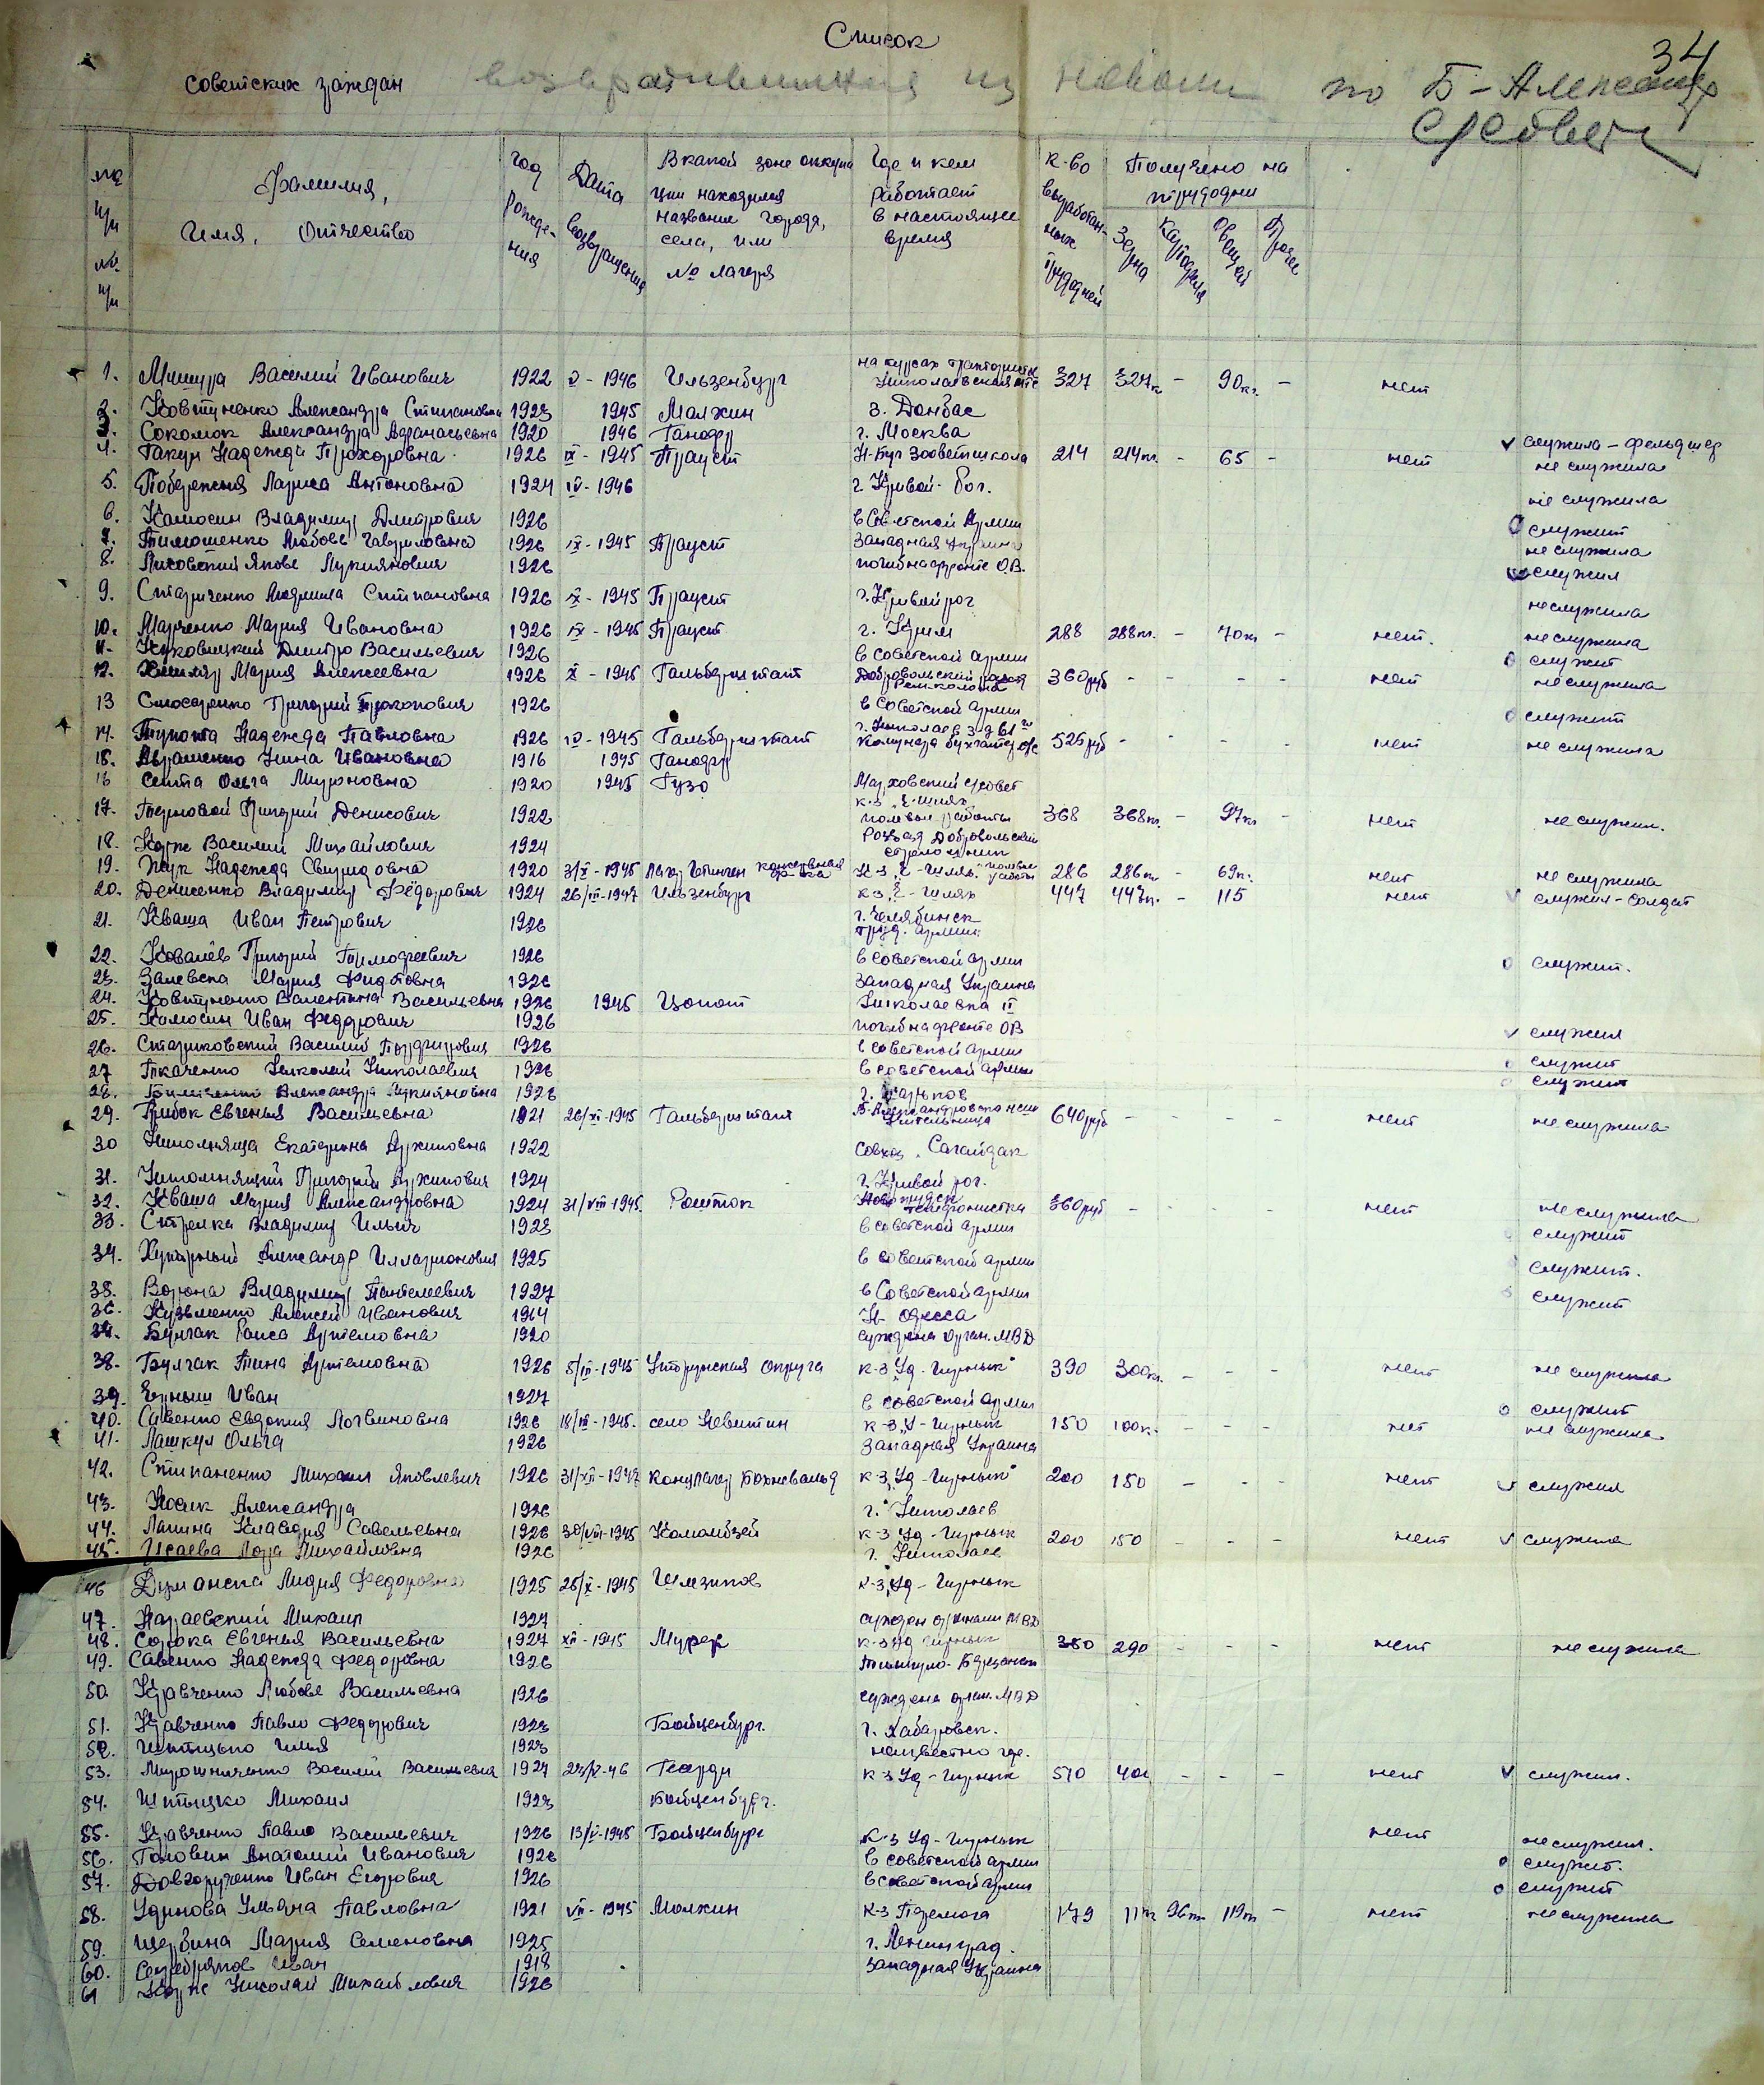 34
Список
советских граждан возвратившихся из неволи по Б-Александр
с/совету
№ п/п № п/п
Фамилия, Имя, Отчество
Год рождения
Дата возвращения
В какой зоне оккупации находился название города, села, или № лагеря
Где и кем работает в настоящее время
К-во выработанных трудодней
Получено на трудодни
Зерна
Картофеля
Овощей
Проче
1. Мишура Василий Иванович 1922 V - 1946 Ильзенбург на курсах Николаевская мтс 327 327к - 90кг. - нет
2. Ковтуненко Александра Степановна 1923 1945 Малхин г. Донбас
3. Соколюк Александра Афанасьевна 1920 1946 г. Москва
4. Гакун Надежда Прохоровна 1926 IX - 1945 Прауст Н-Буг Зооветшкола 214 214кг. - 65 - нет v служила - фельдшер
не служила
5. Побережня Лариса Антоновна 1924 IV - 1946 г. Кривой-Рог. не служила
6. Камосин Владимир Дмитрович 1926 в Советской Армии 0 служит
7. Тимошенко Любовь Гавриловна 1926 IX - 1945 Прауст Западная Украина не служила
8. Лисовский Яковь Лукиянович 1926 погиб на фронте О.В. v служил
9. Стариченко Людмила Степановна 1926 IX - 1945 Прауст г. Кривой рог не служила
10. Марченко Мария Ивановна 1926 IX - 1945 Прауст г. Крим 288 288кг. - 70кг - нет. не служила
11. Жуковицкий Дмитро Васильевич 1926 в Советской армии 0 служит
12. Мария Алексеевна 1926 X - 1945 Гальберштат Добровольский 360руб - - - - нет не служила
13 Слюсаренко Григорий Прокопович 1926 в Советской армии 0 служит
14. Надежда Павловна 1926 IV - 1945 Гальберштат г. Николаев з-д 61 525руб - - - - нет не служила
15. Авраменко Нина Ивановна 1916 1945
16 Сента Ольга Мироновна 1920 1945 Гузо Марковский с/совет
17. Терновой Григорий Денисович 1922 к-з полевые работы 368 368кг. - 97кг - нет не служил.
18. Корж Василий Михайлович 1924 Розъезд Добровольский стрелочник
19. Жук Надежда Свиридовна 1920 3/X - 1945 286 286кг - 69кг. нет не служила
20. Денисенко Владимир Федорович 1924 26/III-1947 Ильзенбург к-з 447 447кг. - 115 нет v служил - солдат
21. Кваша Иван Петрович 1926 г. Челябинск труд. армии
22. Ковалёв Григорий Тимофеевич 1926 в Советской армии 0 служит.
23. Залевска Мария 1926 Западная Украина
24. Ковтуненко Валентина Васильевна 1926 1945 Цопот Николаевка II
25. Камосин Иван Федорович 1926 погиб на фронте ОВ v служил
26. Стариковский Василий 1926 в советской армии 0 служит
27 Ткаченко Николай Николаевич 1926 в советской армии 0 служит
28. Александра Лукияновна 1926 г. Харьков
29. Грибок Евгения Васильевна 1921 26/XI-1945 Гальберштат Б-Александровская учительница 640руб - - - - нет не служила
30 Екатерина Архиповна 1922 Совхоз Сагайдак
31. Григорий Архипович 1924 г. Кривой рог.
32. Кваша Мария Александровна 1924 31/VIII-1945. Росток телефонистка 360руб - - - - нет не служила
33. Стрелка Владимир Ильич 1923 в советской армии 0 служит
34. Хуторный Александр Илларионович 1925 в советской армии служит.
35. Ворона Владимир Пантелеевич 1927 в Советской армии служит
36. Кузьменко Алексей Иванович 1914 Н-Одесса
37. Булгак Раиса Артёмовна 1920 суждена орган. МВД
38. Булгак Тина Артемовна 1926 5/IX-1945 округа к-з Уд-Гирнык" 390 300кг. - - - нет не служила
39. Иван 1927 в советской армии 0 служит
40. Савенко Евдокия Логвиновна 1926 село к-з Уд-Гирнык 150 100к. - - - нет не служила
41. Лашкул Ольга 1926 Западная Украина
42. Степаненко Михаил Яковлевич 1926 31/XII-1947 Концлагерь Бохневальд к-з Уд-Гирнык" 200 150 - - - нет v служил
43. Носик Александра 1926 г. Николаев
44. Лапина Клавдия Савельевна 1926 30/VIII-1945 к-з Уд-Гирнык 200 150 - - - нет v служила
45. Исаева Лора Михайловна 1926 г. Николаев
46 Думанска Лидия Федоровна 1925 25/X-1945 к-з Уд-Гирнык
47. Караевский Михаил 1927 сужден органами МВД
48. Сорока Евгения Васильевна 1927 XII-1945 к-з Уд Гирнык 350 290 - - - нет не служила
49. Савенко Надежда Федоровна 1926 Тилигуло-Березанск
50. Кравченко Любовь Васильевна 1926 суждена орган. МВД
51. Кравченко Павло Федорович 1923 Бойценбург. г. Хабаровск.
52. Штыцько Илья 1923 неизвестно где.
53. Мирошниченко Василий Васильевич 1927 к-з Уд-Гирнык 510 - - - нет v служил.
54. Штыцко Михаил 1923 Бойценбург.
55. Кравченко Павло Васильевич 1926 13/V-1945 Бойценбург к-з Уд-Гирнык нет не служил.
56. Головин Анатолий Иванович 1926 в советской армии 0 служит.
57. Довгорученко Иван Егорович 1926 в советской армии 0 служит
58. Удинова Ульяна Павловна 1921 VII-1945 Малхин к-з Перемога 179 11кг 96кг 119кг - нет не служила
59. Щербина Мария Семеновна 1925 г. Ленинград.
60. Серебряков Иван 1918 Западная Украина
61 Корж Николай Михайлович 1926